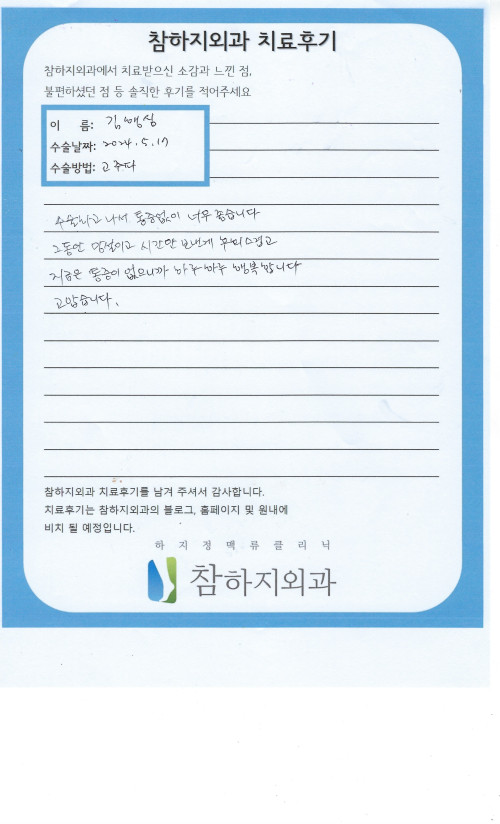 참하지외과 치료후기
참하지외과에서 치료받으신 소감과 느낀 점,
불편하셨던 점 등 솔직한 후기를 적어주세요
이 름: 김
수술날짜: 2024. 5. 17
수술방법: 고주파
수술하고 나서 통증없이 너무 좋습니다
그동안 망설이고 시간만 보낸게 후회스럽고
지금은 통증이 없으니까 하루하루 행복합니다
고맙습니다.
참하지외과 치료후기를 남겨 주셔서 감사합니다.
치료후기는 참하지외과의 블로그, 홈페이지 및 원내에
비치 될 예정입니다.
하지정맥류클리닉
참하지외과